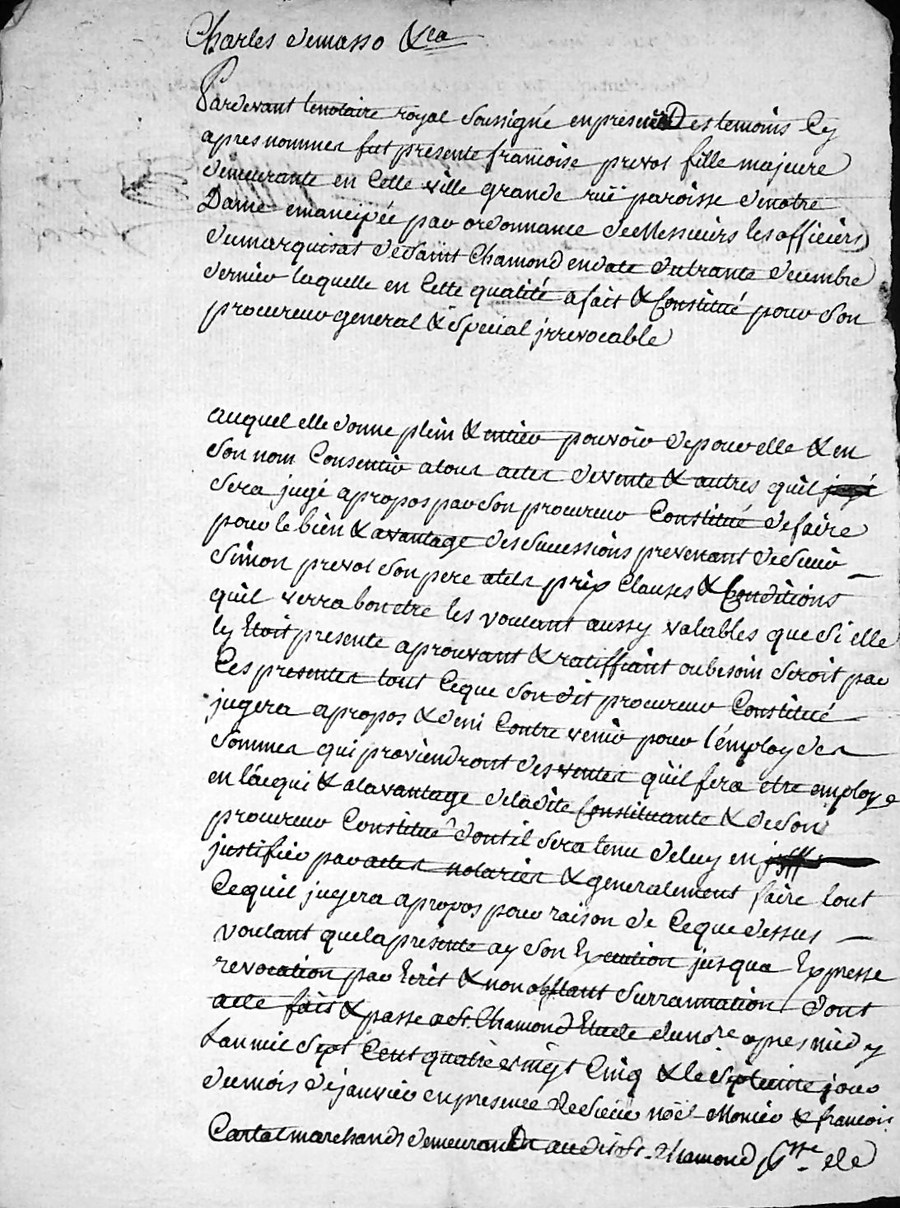 Charles demasso &ca
Pardevant lenotaire royal Soussigné enpresence Des temoins Cy
apres nommes fut presente francoise prevot fille majeure
demeurante en Cette ville grande ruë paroisse denotre
Dame emancipée par ordonnance deMessieurs les officiers
dumarquisat deSaint Chamond endate dutrante decembre
dernier laquelle en Cette qualité afait & Constitué pour Son
procureur general & Special jrrevocable
auquel elle donne plein & entier pouvoir depour elle & en
Son nom Consentir atous actes devente & autres quil
Sera jugé apropos par Son procureur Constitué defaire
pour le bien & avantage desSucessions provenant deSieur
Simon prevot Son pere atels prix Clauses & Conditions
quil verra bonetre les voulant aussy valables que Si elle
ly Etoit presente aprouvant & ratiffiant oubesoin Seroit par
Ces presentes tout Ceque Son dit procureur Constitué
jugera apropos & deni Contre venir pour l'employ des
Sommes qui proviendront des ventes quil fera etre employé
en l'acqui & alavantage deladite Constituante & deSon
procureur Constitué dontil Sera tenu deluy en
justifier par actes notariés & generalement faire tout
Cequil jugera apropos pour raison de Ceque dessus
voulant quelapresente ay Son Execution jusqua Expresse
revocation par Ecrit & non obstant Surrannation dont
acte fait & passe aSt. Chamond Etude dunore apres midy
Lan mil Sept Cent quatre vingt Cinq & le Septieme jour
dumois dejanvier enpresence deSieur noël Monier & francois
Cartal marchands demeurants audit St. Chamond